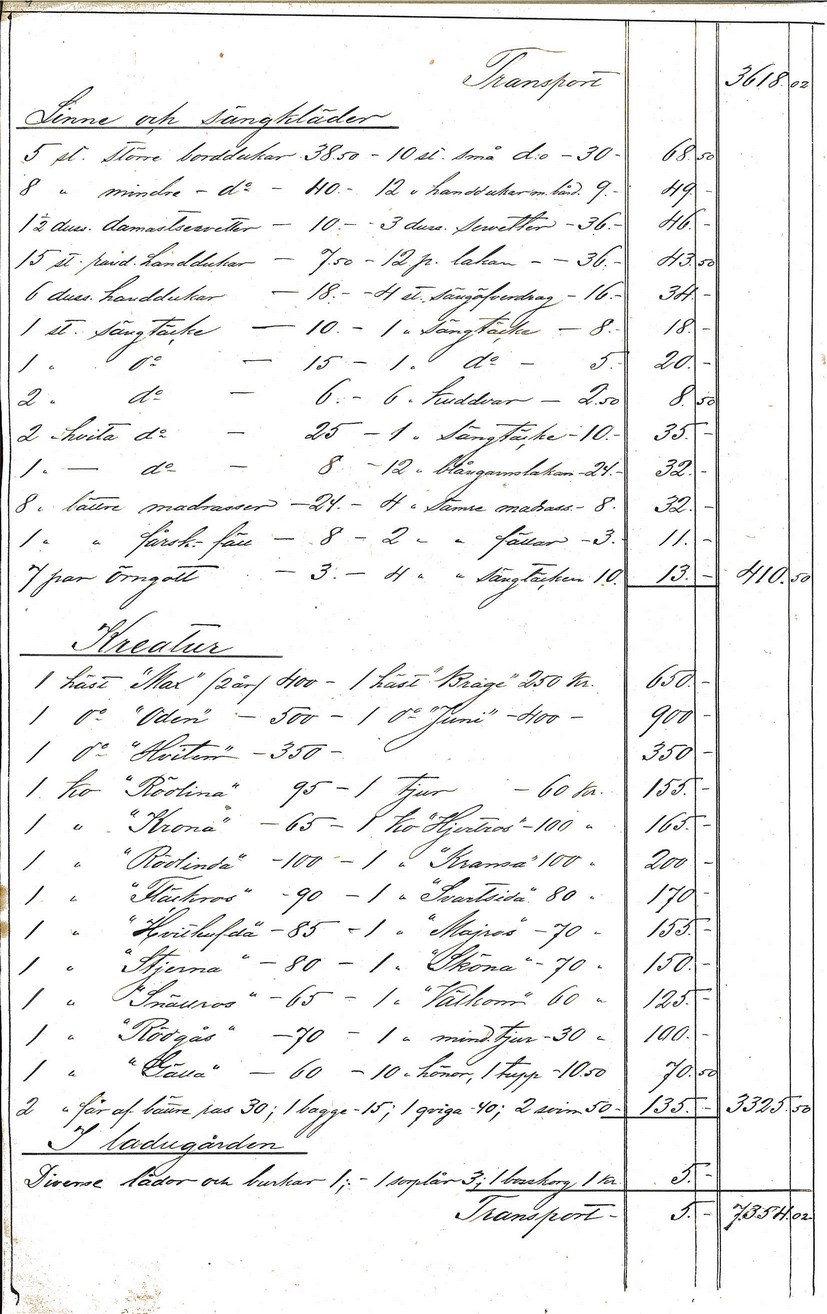 Transport 3618.02
Linne och sängkläder
5 st. större borddukar 38.50 - 10 st. små d:o - 30 - 68.50
8 " mindre - do - 40.- 12 " handdukar m. bård. 9.- 49.-
1½ duss. damastservetter - 10.- - 3 duss. servetter - 36.- 46.-
15 st. handdukar - 7.50 - 12 p. lakan - - 36.- 43.50
6 duss. handdukar - 18.- - 4 st. sängöfverdrag - 16.- 34.-
1 st. sängtäcke - 10.- - 1 " sängtäcke - 8.- 18.-
1 " do - 15 - 1 " do - 5.- 20.-
2 " do - 6.- - 6 " kuddvar - 2.50 8.50
2 hvita do - 25 - 1 " sängtäcke - 10.- 35.-
1 " - do - 8 - 12 " blångarnslakan - 24.- 32.-
8 " bättre madrasser - 24.- - 4 " sämre madrass. - 8.- 32.-
1 " " fårsk. fäll - 8 - 2 " " fällar - 3.- 11.-
7 par örngott - 3.- - 4 " " sängtäcken 10. 13.- 410.50
Kreatur
1 häst "Max" /2 år/ 400 - 1 häst "Brage" 250 Kr. 650.-
1 do "Oden" - 500 - 1 do "Juni" - 400 - 900 -
1 do "Hviten" - 350 - 350 -
1 ko "Rödlina" 95 - 1 tjur - 60 Kr. 155.-
1 " "Krona" - 65 - 1 ko "Hjertros" - 100 " 165.-
1 " "Rödlinda" - 100 - 1 " "Kransa" 100 " 200 -
1 " "Fläckros" - 90 - 1 " "Svartsida" 80 " 170 -
1 " "Hvithufda" - 85 - 1 " "Majros" - 70 " 155.-
1 " "Stjerna" - 80 - 1 " "Sköna" - 70 " 150.-
1 " "Snällros" - 65 - 1 " "Välkom" 60 " 125.-
1 " "Rödgås" - 70 - 1 " mind. tjur - 30 " 100.-
1 " - 60 - 10 " hönor, 1 tupp - 10.50 70.50
2 " får af bättre ras 30; 1 bagge - 15; 1 qviga - 40; 2 svin 50 - 135.- 3325.50
I ladugården
Diverse lådor och burkar 1; - 1 sorplår 3; 1 1 Kr. 5.-
Transport - 5.- 7354.02